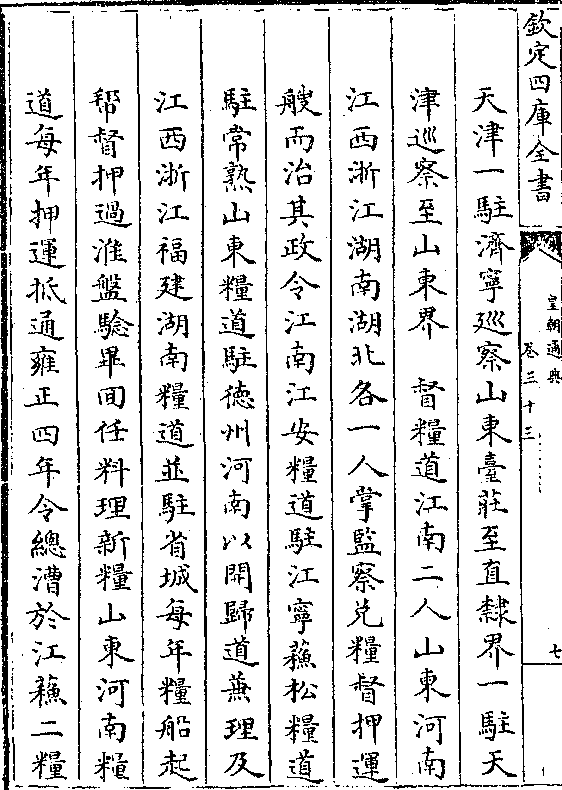 欽定四庫全書
皇朝通典
卷三十三
七
天津一駐濟寧廵察山東臺莊至直隸界一駐天
津廵察至山東界　督糧道江南二人山東河南
江西浙江湖南湖北各一人掌監察兑糧督押運
艘而治其政令江南江安糧道駐江寧蘓松糧道
駐常熟山東糧道駐德州河南以開歸道兼理及
江西浙江福建湖南糧道並駐省城每年糧船起
幇督押過淮盤驗畢回任料理新糧山東河南糧
道每年押運抵通雍正四年令總漕於江蘓二糧